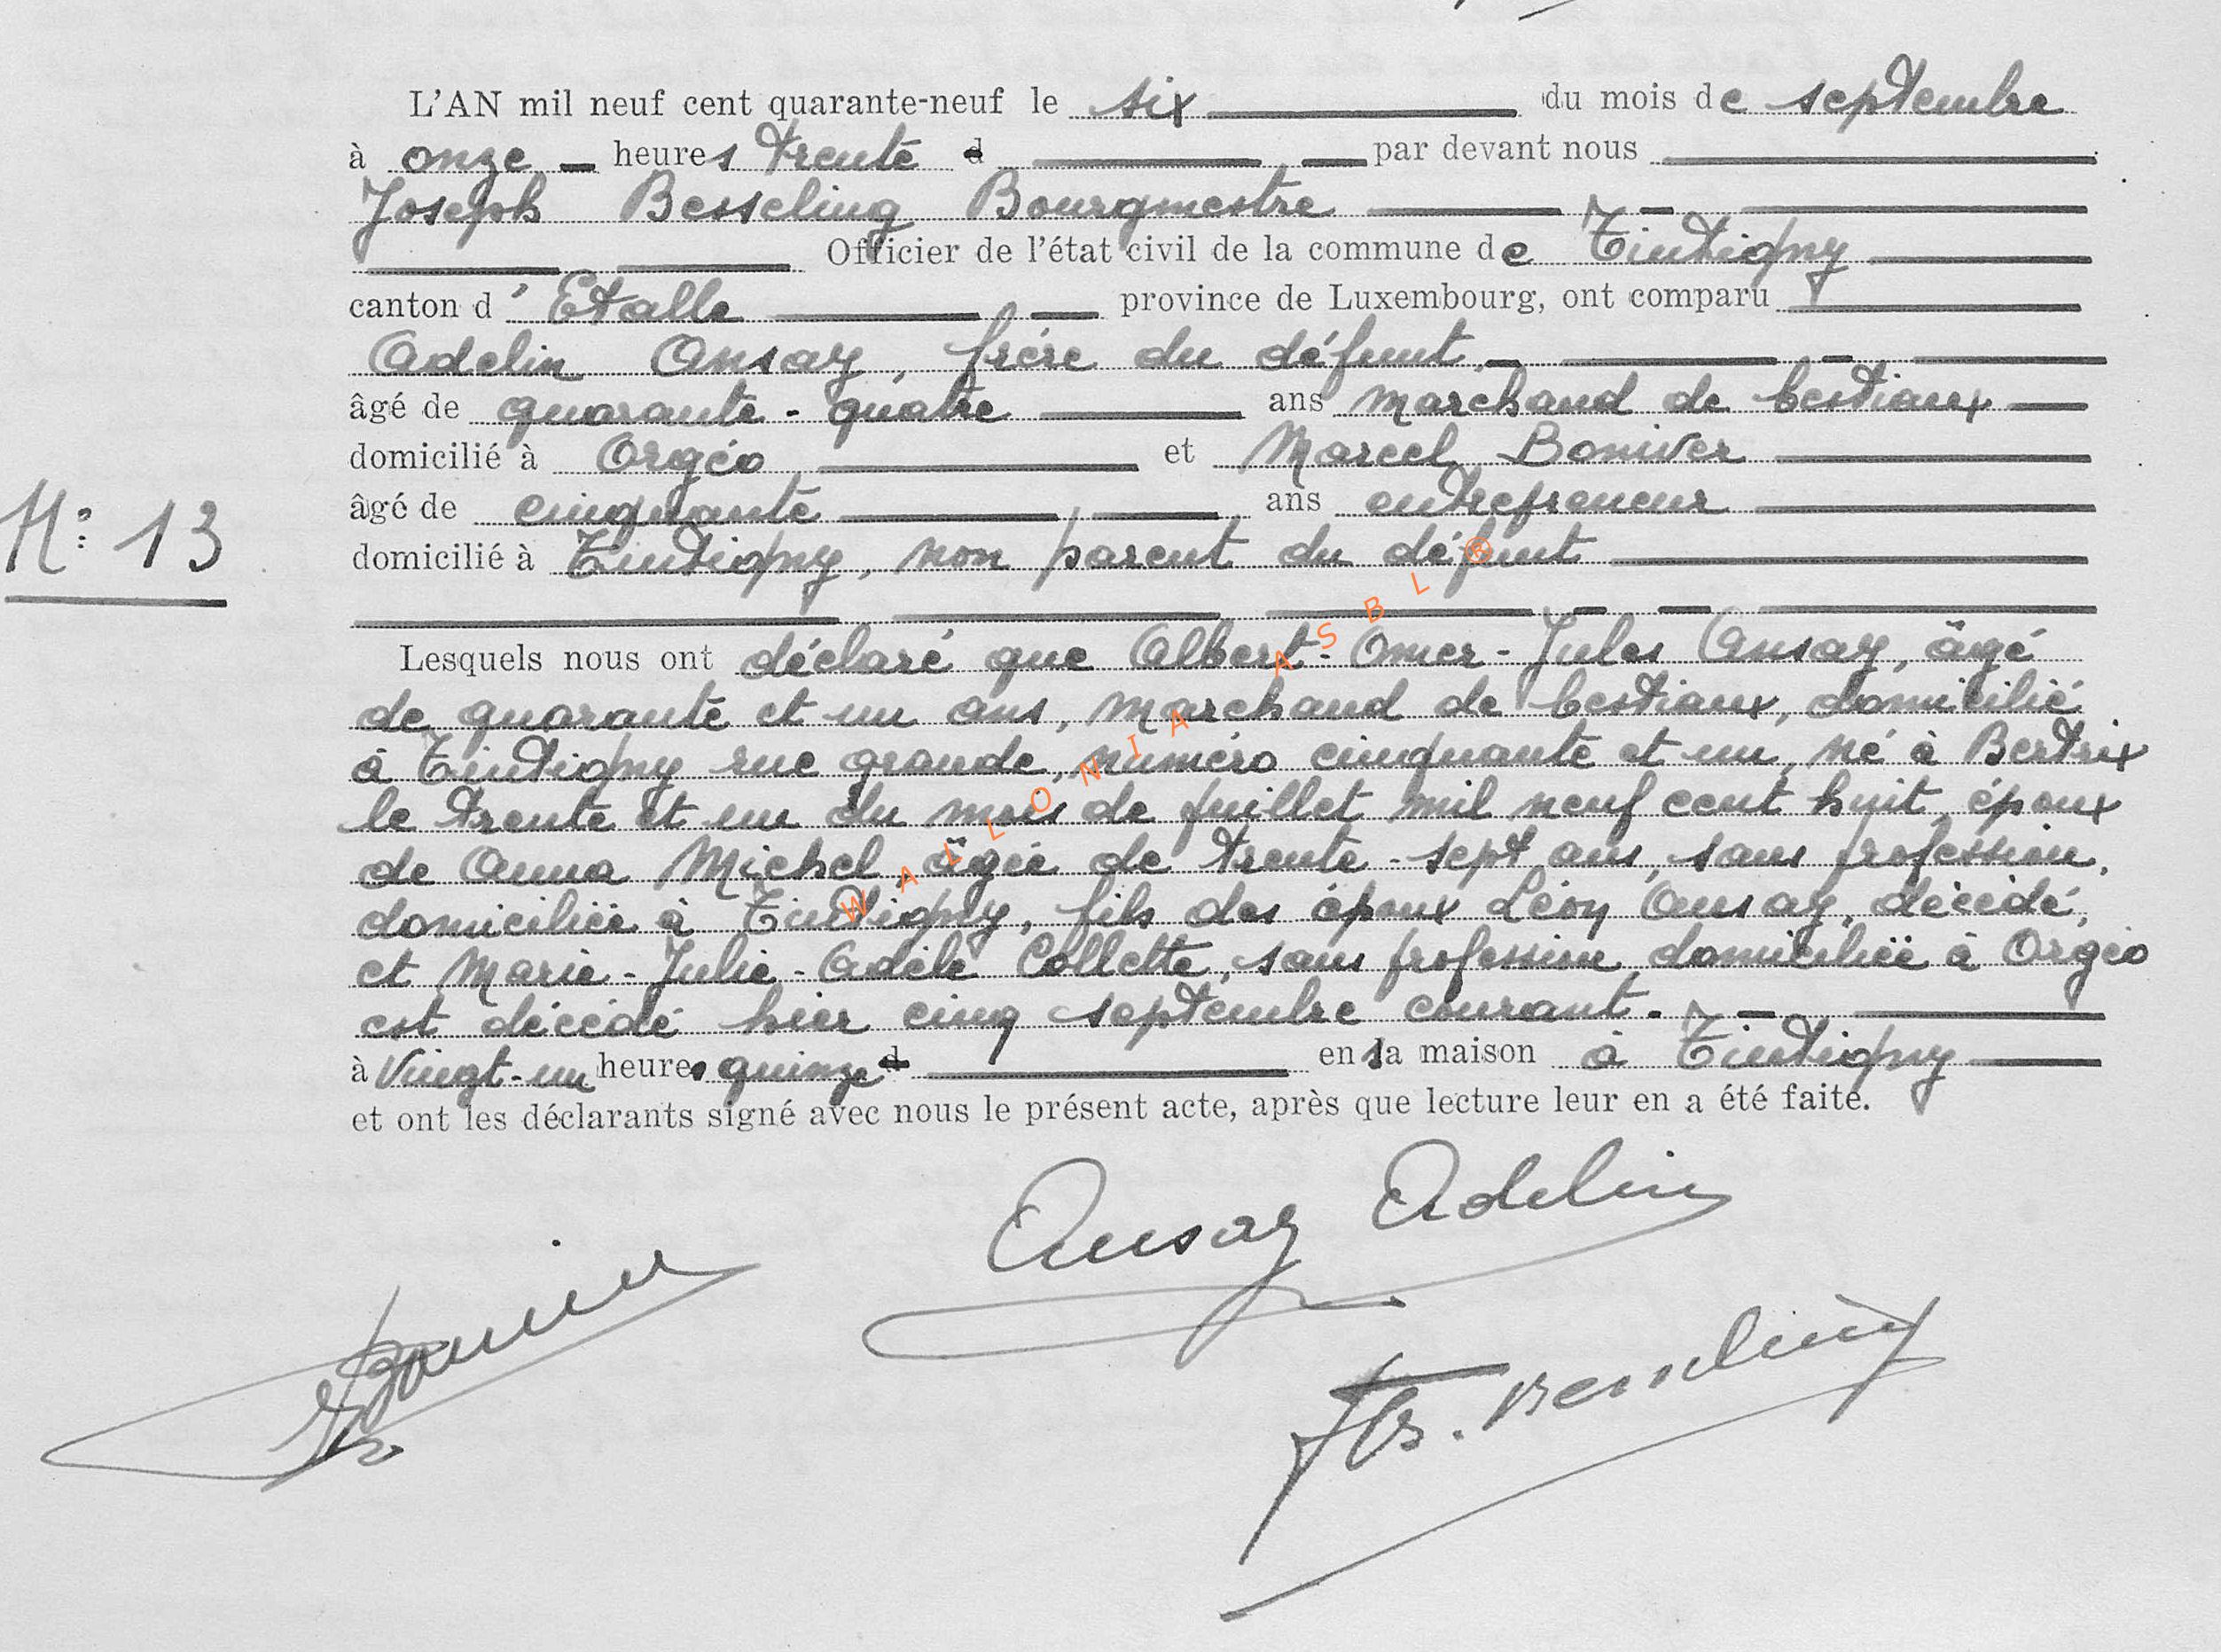 L'AN mil neuf cent quarante-neuf le six du mois de septembre
à onze heures trente d par devant nous
Joseph Besseling Bourgmestre
Officier de l'état civil de la commune de Tintigny
canton d' Etalle province de Luxembourg, ont comparu
Adelin Ansay, frère du défunt
âgé de quarante-quatre ans marchand de bestiaux
domicilié à Orgéo et Marcel Boniver
âgé de cinquante ans entrepreneur
N° 13
domicilié à Tintigny, non parent du défunt
Lesquels nous ont déclaré que Albert-Omer-Jules Ansay, âgé
de quarante et un ans, marchand de bestiaux, domicilié
à Tintigny rue grande, numéro cinquante et un, né à Bertrix
le trente et un du mois de juillet mil neuf cent huit, époux
de Anna Michel, âgée de trente-sept ans, sans profession,
domiciliée à Tintigny, fils des époux Léon Ansay, décédé,
et Marie-Julie-Adèle Collette, sans profession, domiciliée à Orgéo
est décédé hier cinq septembre courant.
à vingt-un heures quinze d en sa maison à Tintigny
et ont les déclarants signé avec nous le présent acte, après que lecture leur en a été faite.
Ansay Adelin
WALLONIA ASBL ®